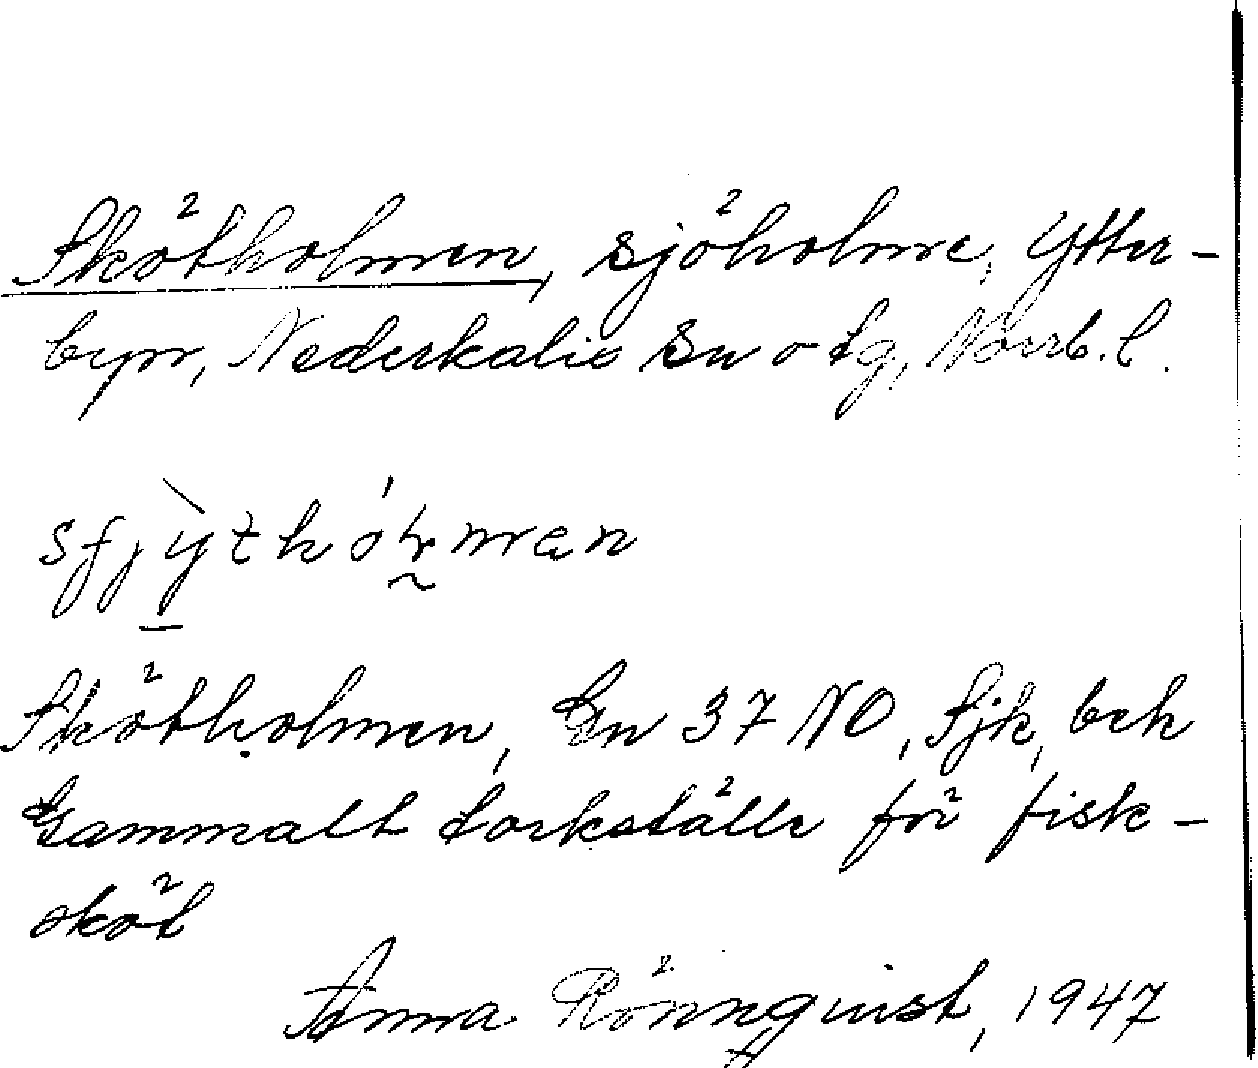 Skötholmen, sjöholme, Ytter-
byn, Nederkalix sn o tg, Norrb. l.
Skötholmen, Gn 37 NO, Sjk, bek
Gammalt torkställe för fisk-
sköt
Anna Rönnqvist, 1947